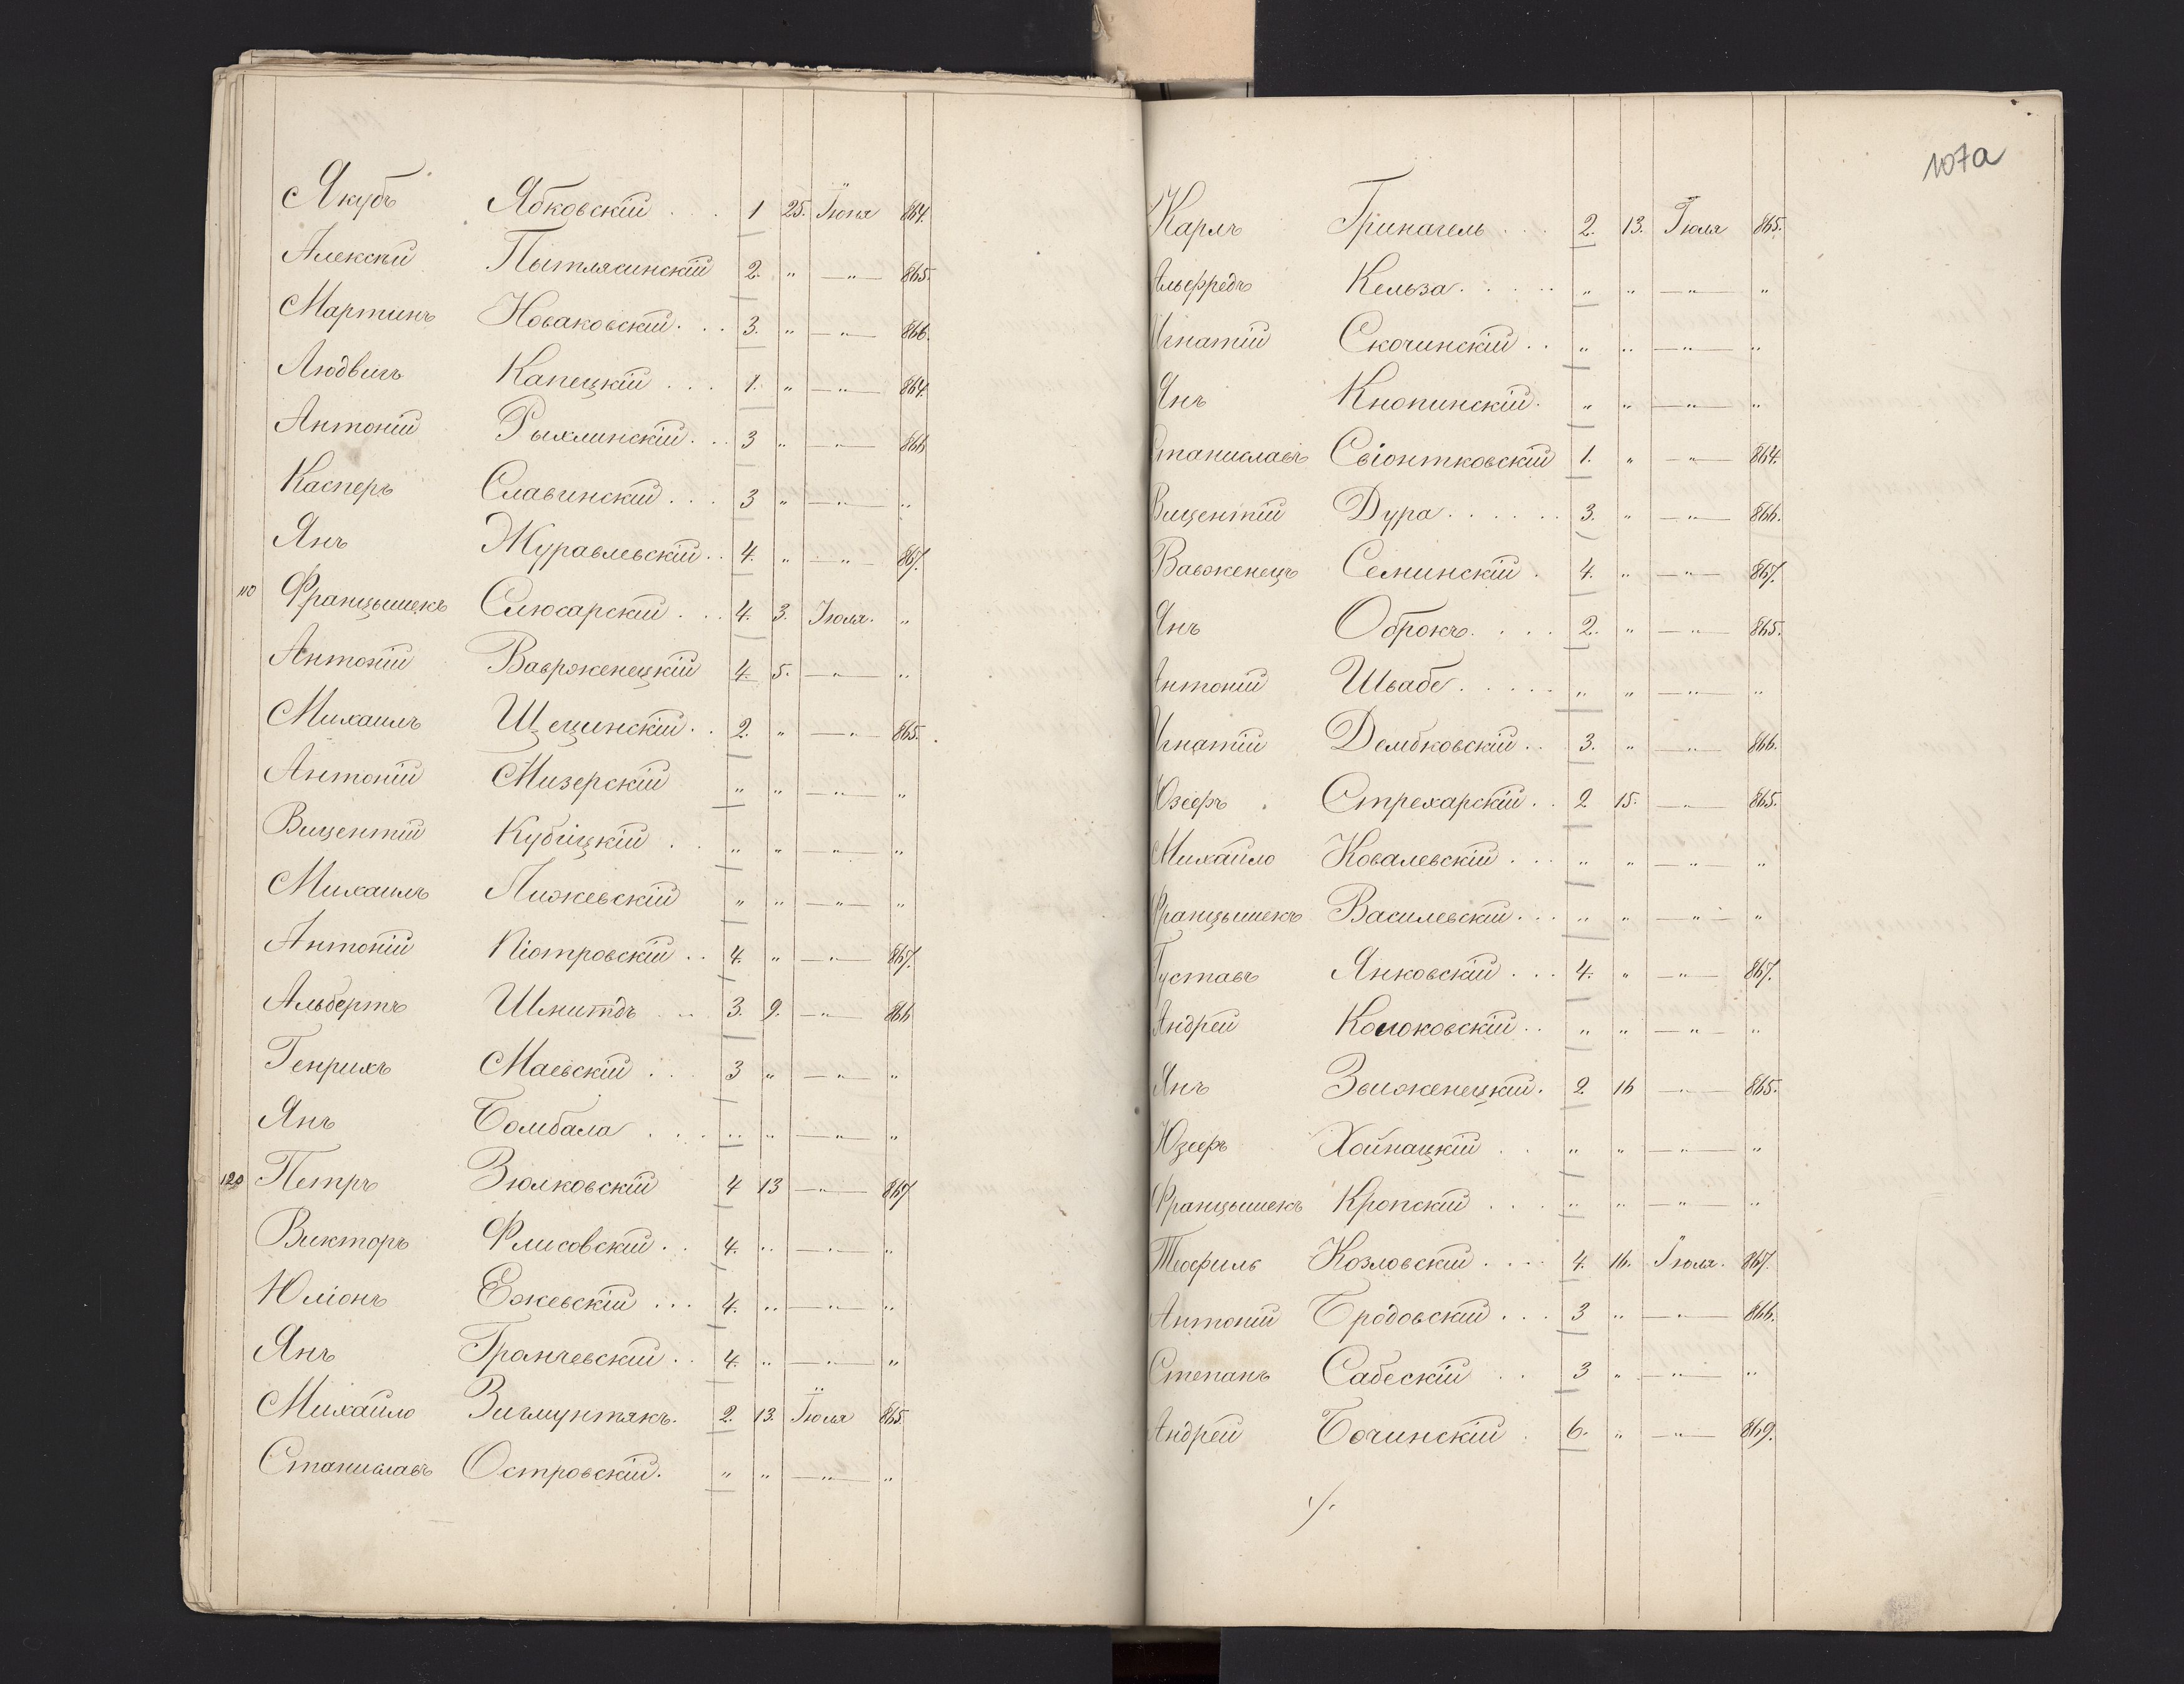 Якубъ Ябковскій . . . 1 25. Іюня 864.
Алексѣй Пытлясинскій 2. " —"— 865.
Мартинъ Новаковскій . . . 3. " —"— 866.
Людвигъ Капецкій . . . 1. " —"— 864.
Антоній Рыхлинскій . . . 3 " —"— 866
Касперъ Славинскій . . . 3 " —"— "
Янъ Журавлевскій . . 4. " —"— 867.
110 Францышекъ Слюсарскій . . . 4. 3. Іюля. "
Антоній Вавроженецкій 4. 5. —"— "
Михаилъ Щецинскій . . 2. " —"— 865.
Антоній Мизерскій " " —"— "
Вицентій Кубицкій . . " " —"— "
Михаилъ Лижевскій " " —"— "
Антоній Піотровскій . . 4. " —"— 867.
Альбертъ Шмитдъ . . . 3. 9. —"— 866
Генрихъ Маевскій . . . 3 " —"— "
Янъ Бомбала . . . " " —"— "
120 Петръ Зюлковскій 4 13 —"— 867
Викторъ Флисовскій . . 4. " —"— "
Юліонъ Ежевскій . . . 4. " —"— "
Янъ Грончевскій . . 4. " —"— "
Михайло Зигмунтякъ. 2. 13. Іюля 865.
Станиславъ Островскій. " " —"— "
107a
Карлъ Гринагель . . . 2. 13. Іюля 865.
Альфредъ Кельза . . . . . " " —"— "
Игнатій Скочинскій . . " " —"— "
Янъ Кнопинскій. " " —"— "
Станиславъ Свіонтковскій 1. " —"— 864.
Вицентій Дура . . . . . . 3. " —"— 866.
Вавженецъ Семинскій . 4. " —"— 867.
Янъ Оброкъ . . . . 2. " —"— 865.
Антоній Швабе . . . . . " " —"— "
Игнатій Дембковскій . . 3. " —"— 866.
Юзефъ Стрехарскій . . 2 15. —"— 865.
Михайло Ковалевскій . . . " " —"— "
Францышекъ Василевскій . . . " " —"— "
Густавъ Янковскій . . . 4. " —"— 867.
Андрей . . " " —"— "
Янъ 2. 16 —"— 865.
Юзефъ Хойнацкій . . " " —"— "
Францышекъ Кропскій . . . " " —"— "
Теофиль Козловскій . . . . 4. 16. Іюля. 867.
Антоній Бродовскій . . . 3 " —"— 866.
Степанъ Сабескій . . 3 " —"— "
Андрей Бочинскій . 6. " —"— 869.
·/.